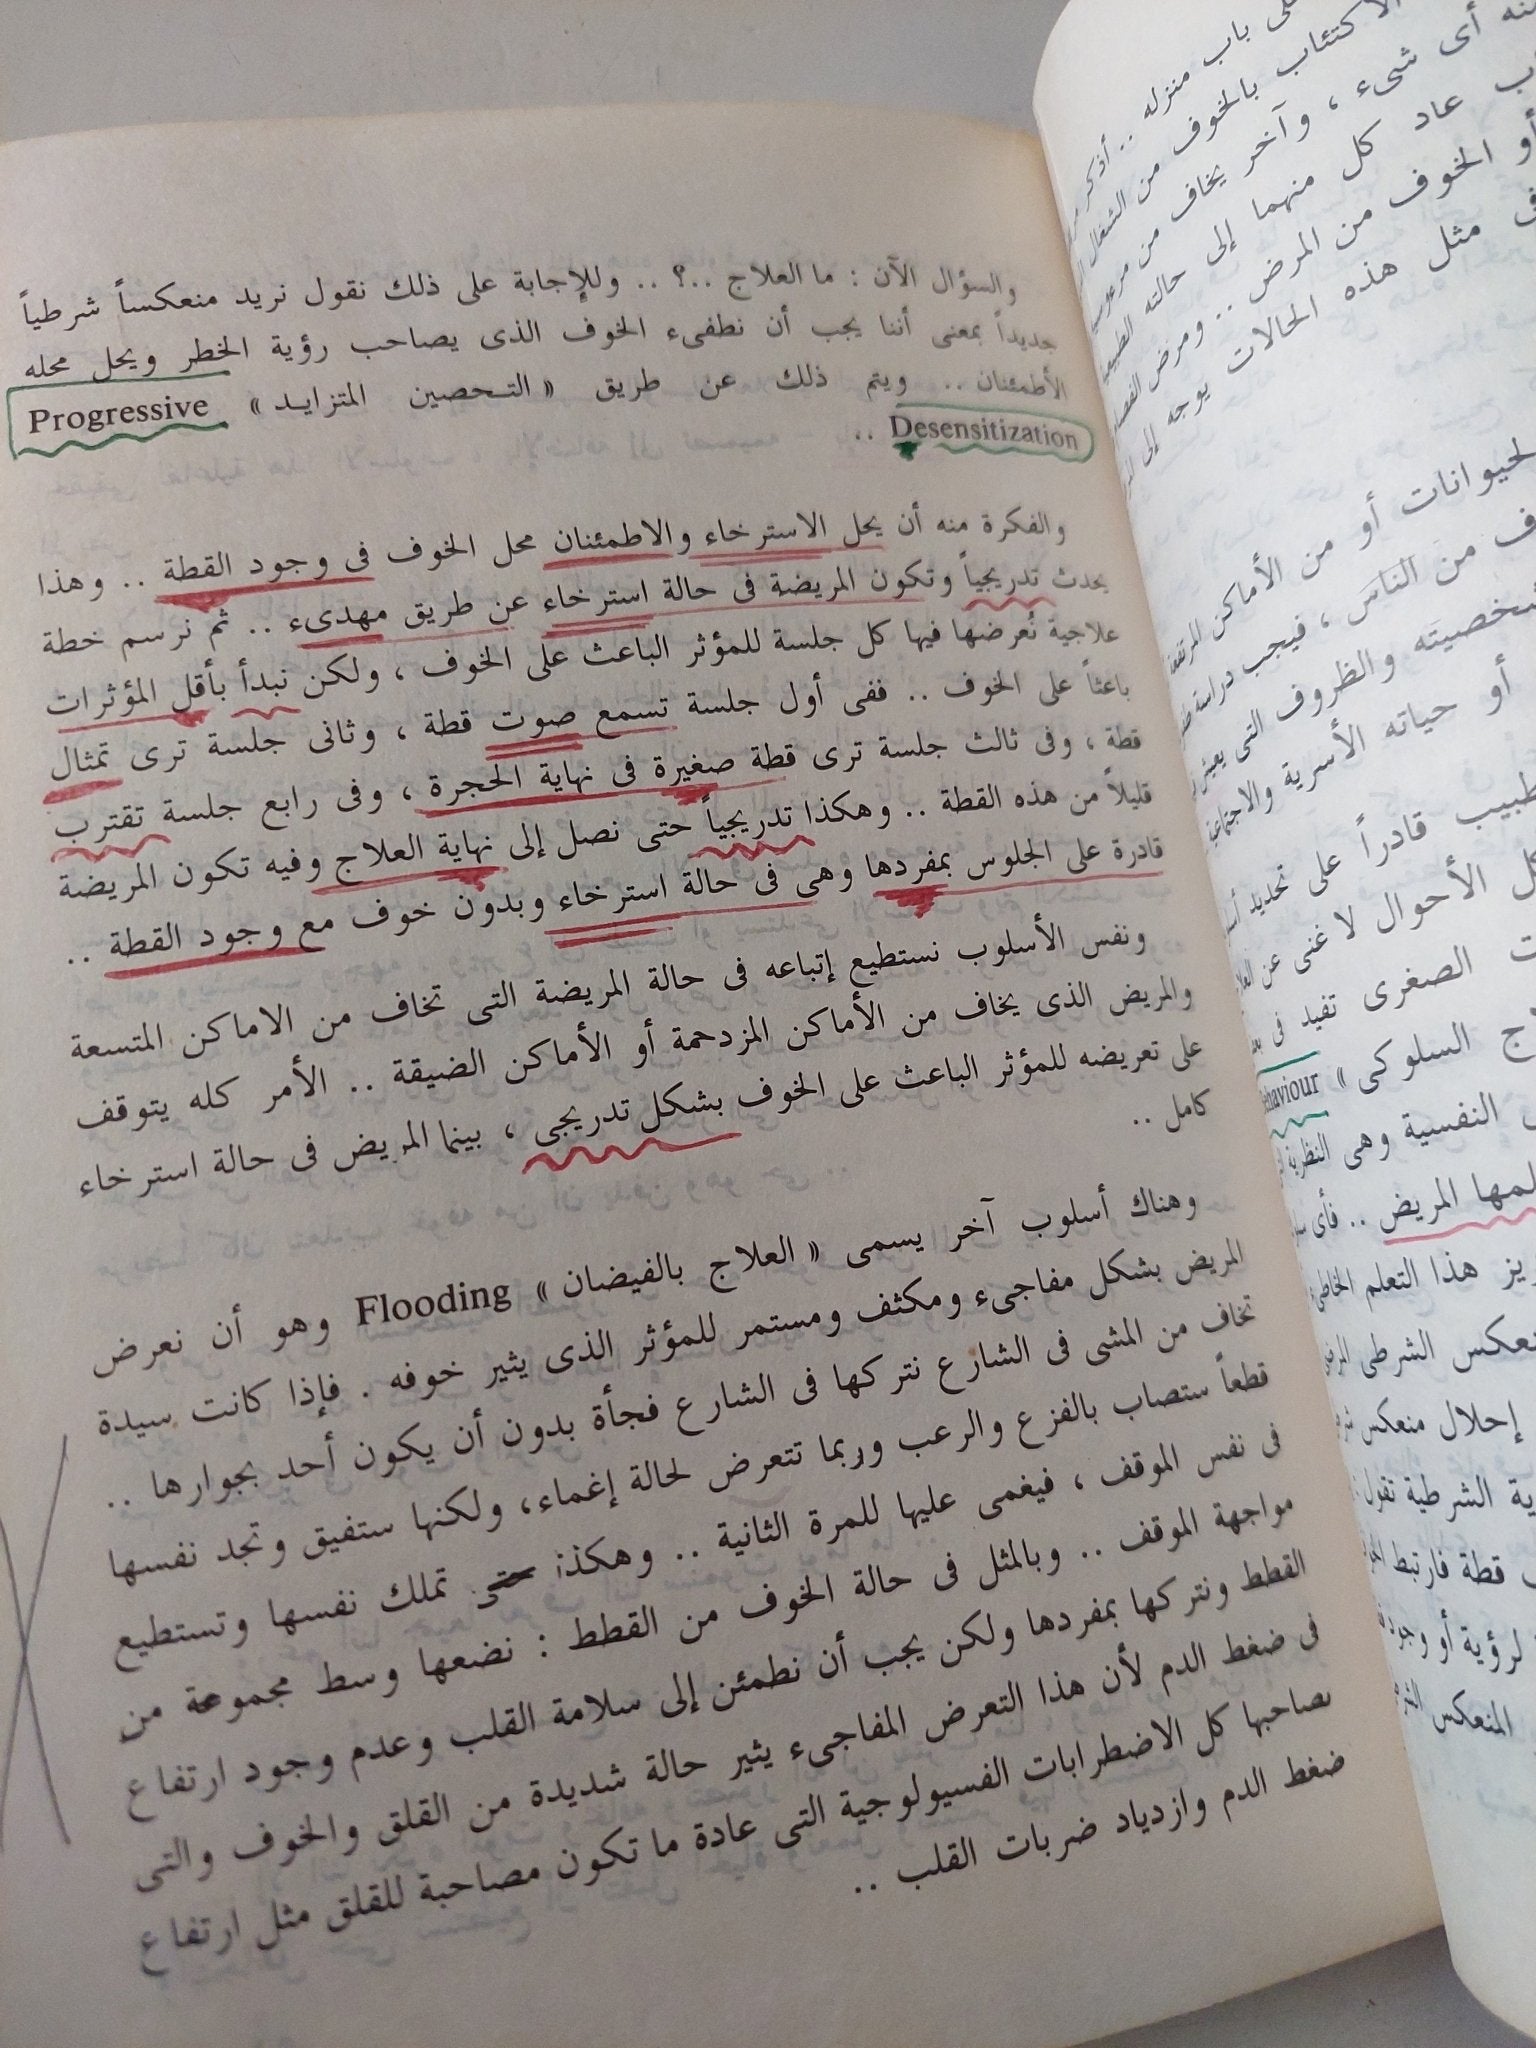 والسؤال الآن : ما العلاج ..؟ .. وللإجابة على ذلك نقول نريد منعكساً شرطياً
جديداً بمعنى أننا يجب أن نطفىء الخوف الذى يصاحب رؤية الخطر ويحل محله
الأطمئنان .. ويتم ذلك عن طريق « التحصين المتزايد » Progressive
Desensitization ..
والفكرة منه أن يحل الاسترخاء والاطمئنان محل الخوف فى وجود القطة .. وهذا
يحدث تدريجياً وتكون المريضة فى حالة استرخاء عن طريق مهدىء .. ثم نرسم خطة
علاجية نُعرضها فيها كل جلسة للمؤثر الباعث على الخوف ، ولكن نبدأ بأقل المؤثرات
باعثاً على الخوف .. ففى أول جلسة تسمع صوت قطة ، وثانى جلسة ترى تمثال
قطة ، وفى ثالث جلسة ترى قطة صغيرة فى نهاية الحجرة ، وفى رابع جلسة تقترب
قليلاً من هذه القطة .. وهكذا تدريجياً حتى نصل إلى نهاية العلاج وفيه تكون المريضة
قادرة على الجلوس بمفردها وهى فى حالة استرخاء وبدون خوف مع وجود القطة ..
ونفس الأسلوب نستطيع إتباعه فى حالة المريضة التى تخاف من الاماكن المتسعة
والمريض الذى يخاف من الأماكن المزدحمة أو الأماكن الضيقة .. الأمر كله يتوقف
على تعريضه للمؤثر الباعث على الخوف بشكل تدريجى ، بينما المريض فى حالة استرخاء
كامل ..
وهناك أسلوب آخر يسمى « العلاج بالفيضان » Flooding وهو أن نعرض
المريض بشكل مفاجىء ومكثف ومستمر للمؤثر الذى يثير خوفه . فإذا كانت سيدة
تخاف من المشى فى الشارع نتركها فى الشارع فجأة بدون أن يكون أحد بجوارها ..
قطعاً ستصاب بالفزع والرعب وربما تتعرض لحالة إغماء، ولكنها ستفيق وتجد نفسها
فى نفس الموقف ، فيغمى عليها للمرة الثانية .. وهكذا حتى تملك نفسها وتستطيع
مواجهة الموقف .. وبالمثل فى حالة الخوف من القطط : نضعها وسط مجموعة من
القطط ونتركها بمفردها ولكن يجب أن نطمئن إلى سلامة القلب وعدم وجود ارتفاع
فى ضغط الدم لأن هذا التعرض المفاجىء يثير حالة شديدة من القلق والخوف والتى
يصاحبها كل الاضطرابات الفسيولوجية التى عادة ما تكون مصاحبة للقلق مثل ارتفاع
ضغط الدم وازدياد ضربات القلب ..
باب منزله .. أذكر
الاكتئاب بالخوف من
أى شىء ، وآخر يخاف من
عاد كل منهما إلى حالته
أو الخوف من المرض .. ومرض
مثل هذه الحالات يوجه إلى
أو من الأماكن المرتفعة
من الناس ، فيجب دراسة
والظروف التى
أو حياته الأسرية والاجتماعية
قادراً على تحديد
الأحوال لا غنى عن
الصغرى تفيد فى
السلوكى »
النفسية وهى النظرية
المريض ..
هذا التعلم
الشرطى
إحلال منعكس
الشرطية تقول
قطة فارتبط
لرؤية أو وجود
المنعكس